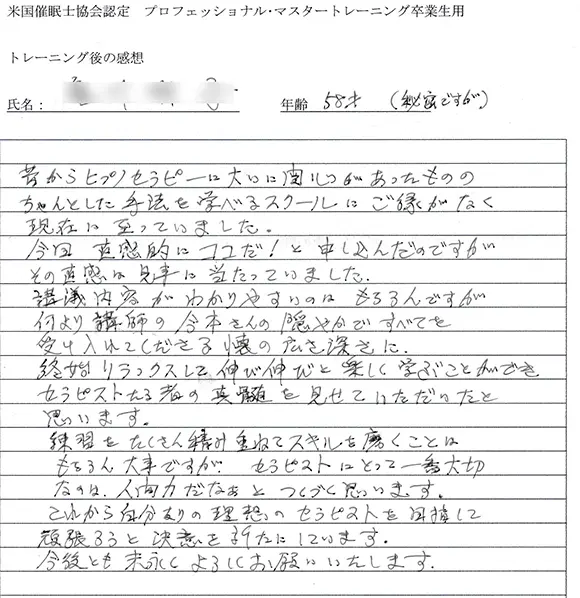 米国催眠士協会認定 プロフェッショナル・マスタートレーニング卒業生用
トレーニング後の感想
氏名： 年齢 58才 (秘密ですが)
昔からヒプノセラピーに大いに関心があったものの
ちゃんとした手法を学べるスクールにご縁がなく
現在に至っていました。
今回 直感的にココだ！と申し込んだのですが
その直感は見事に当たっていました。
講義内容がわかりやすいのはもちろんですが
何より講師の今本さんの穏やかですべてを
受け入れてくださる懐の広さ深さに、
終始リラックスして伸び伸びと楽しく学ぶことができ
セラピストたる者の真髄を見せていただいたと
思います。
練習をたくさん積み重ねてスキルを磨くことは
もちろん大事ですが、セラピストにとって一番大切
なのは、人間力だなぁとつくづく思います。
これから自分なりの理想のセラピストを目指して
頑張ろうと決意を新たにしています。
今後とも末永くよろしくお願いいたします。